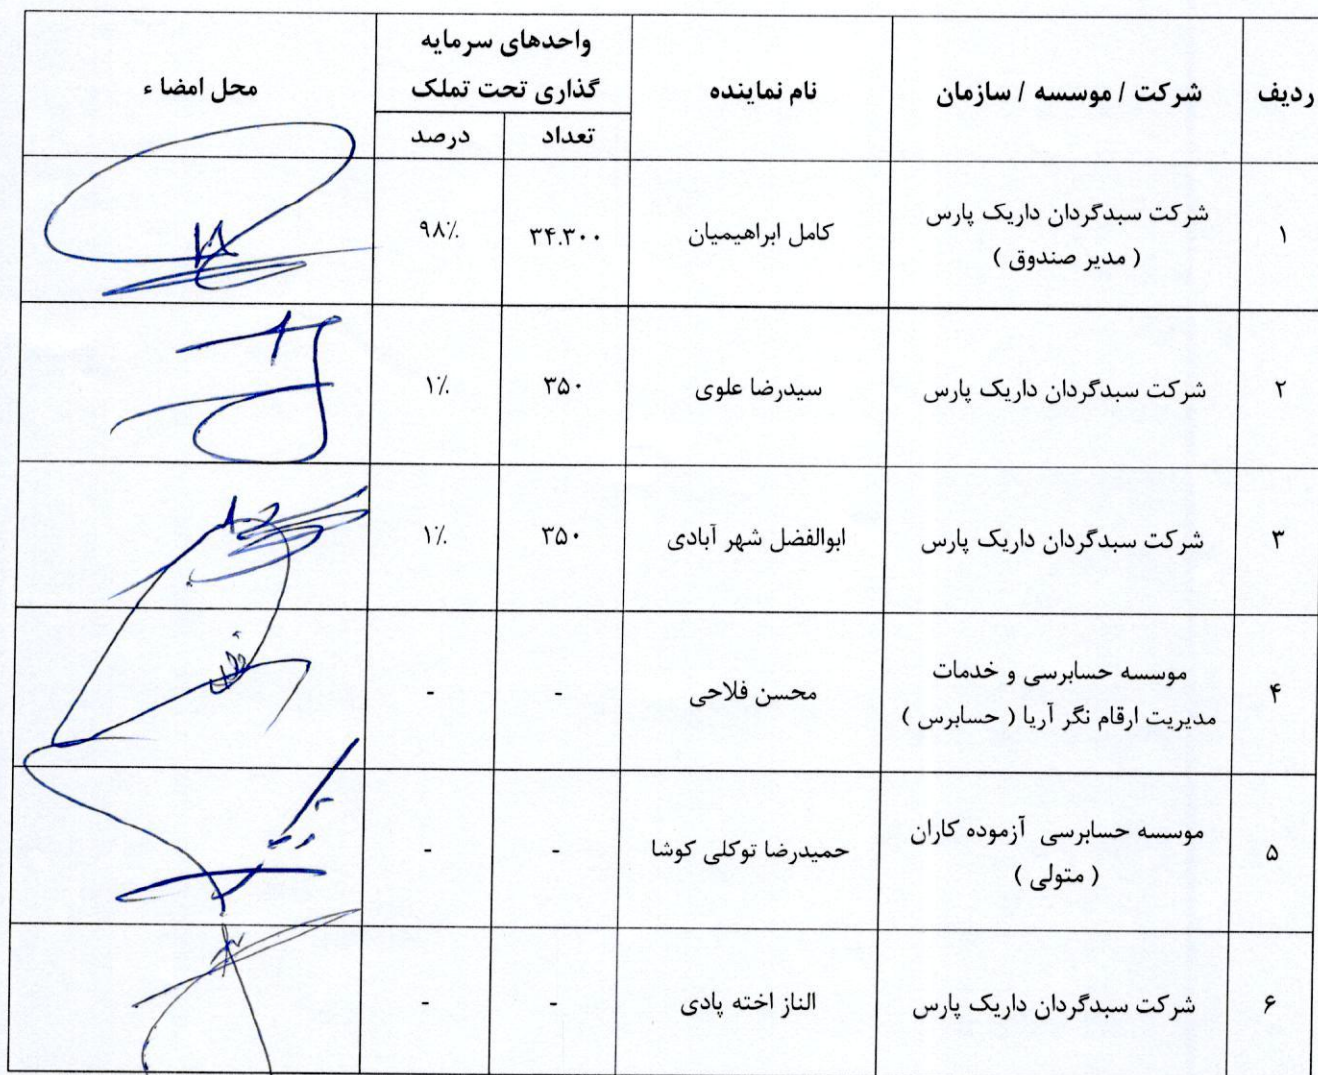 ردیف
شرکت / موسسه / سازمان
نام نماینده
واحدهای سرمایه
گذاری تحت تملک
تعداد
درصد
محل امضاء
۱
شرکت سبدگردان داریک پارس
( مدیر صندوق )
کامل ابراهیمیان
۳۴.۳۰۰
۹۸٪
۲
شرکت سبدگردان داریک پارس
سیدرضا علوی
۳۵۰
۱٪
۳
شرکت سبدگردان داریک پارس
ابوالفضل شهر آبادی
۳۵۰
۱٪
۴
موسسه حسابرسی و خدمات
مدیریت ارقام نگر آریا ( حسابرس )
محسن فلاحی
-
-
۵
موسسه حسابرسی آزموده کاران
( متولی )
حمیدرضا توکلی کوشا
-
-
۶
شرکت سبدگردان داریک پارس
الناز اخته پادی
-
-